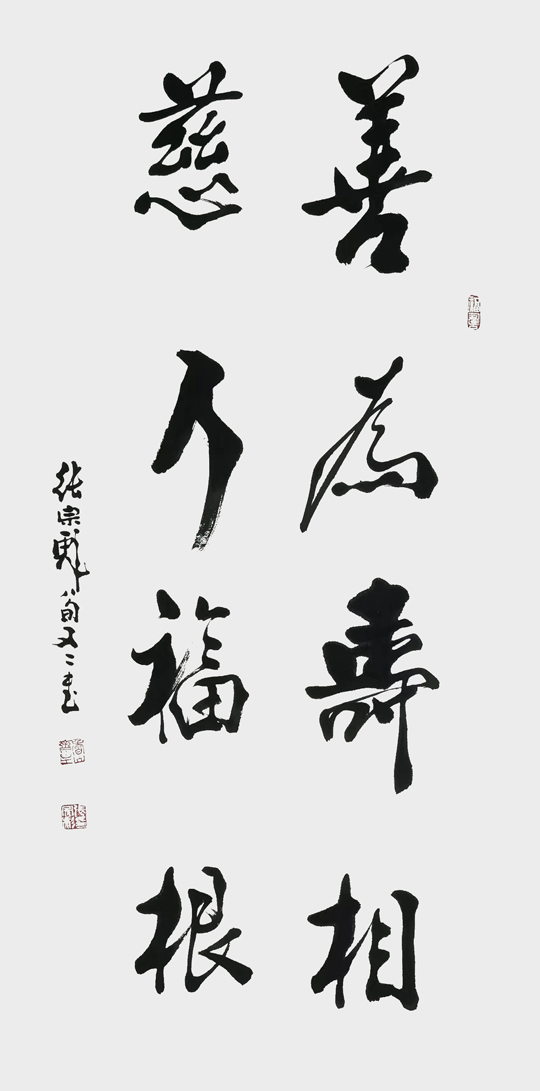 善為壽相
慈乃福根
張宗彪八旬又二書